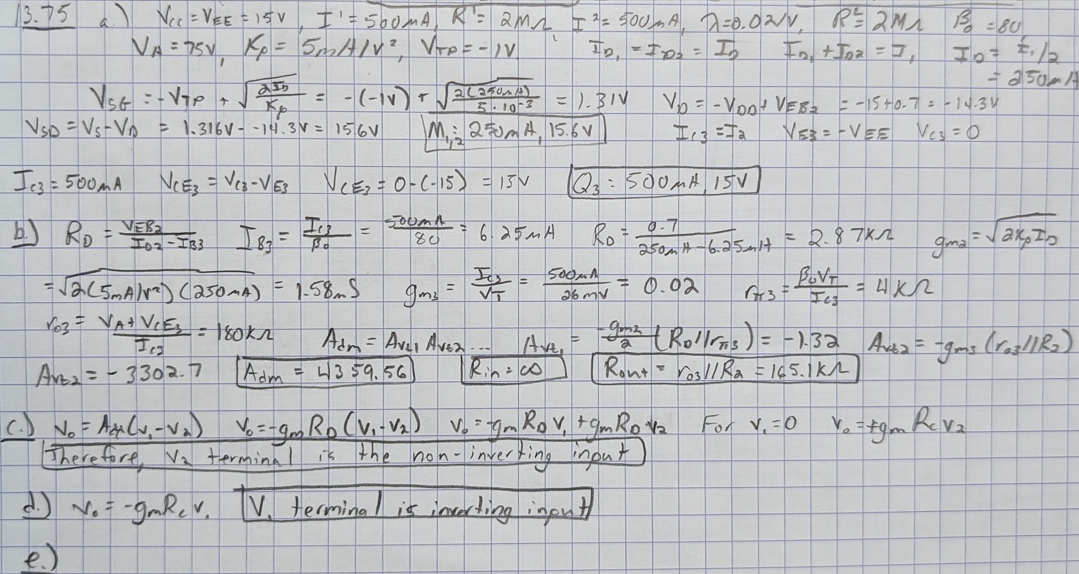 13.75 a.) Vcc = VEE = 15V, I' = 500mA, R' = 2MΩ, I² = 500mA, λ=0.02/V, R² = 2MΩ β₀ = 80,
VA = 75V, Kp = 5mA/V², VTP = -1V ID1 = ID2 = ID ID1 + ID2 = I, ID = I1/2
= 250mA
VSG = -VTP + √(2ID/Kp) = -(-1V) + √(2(250mA)/5·10⁻³) = 1.31V VD = -VDD + VEB2 = -15+0.7 = -14.3V
VSD = VS-VD = 1.316V - -14.3V = 15.6V M1,2: 250mA, 15.6V IC3 = I2 VE3 = -VEE VC3 = 0
IC3 = 500mA VCE3 = VC3-VE3 VCE3 = 0-(-15) = 15V Q3: 500mA, 15V
b.) RD = VEB2/(ID2-IB3) IB3 = IC3/β₀ = 500mA/80 = 6.25mA RD = 0.7/(250mA-6.25mA) = 2.87kΩ gm2 = √(2KpID)
= √(2(5mA/V²)(250mA)) = 1.58mS gm3 = IC3/VT = 500mA/26mV = 0.02 rπ3 = β₀VT/IC3 = 4kΩ
ro3 = (VA+VCE3)/IC3 = 180kΩ Adm = Avt1 Avt2... Avt1 = -gm2/2 (RD//rπ3) = -1.32 Avt2 = -gm3 (ro3//R2)
Avt2 = -3302.7 Adm = 4359.56 Rin = ∞ Rout = ro3//R2 = 165.1kΩ
c.) vo = (v1-v2) vo = -gm RD (v1-v2) vo = -gm RD v1 + gm RD v2 For v1 = 0 vo = +gm Rc v2
Therefore, v2 terminal is the non-inverting input
d.) vo = -gm Rc v1 V1 terminal is inverting input
e.)